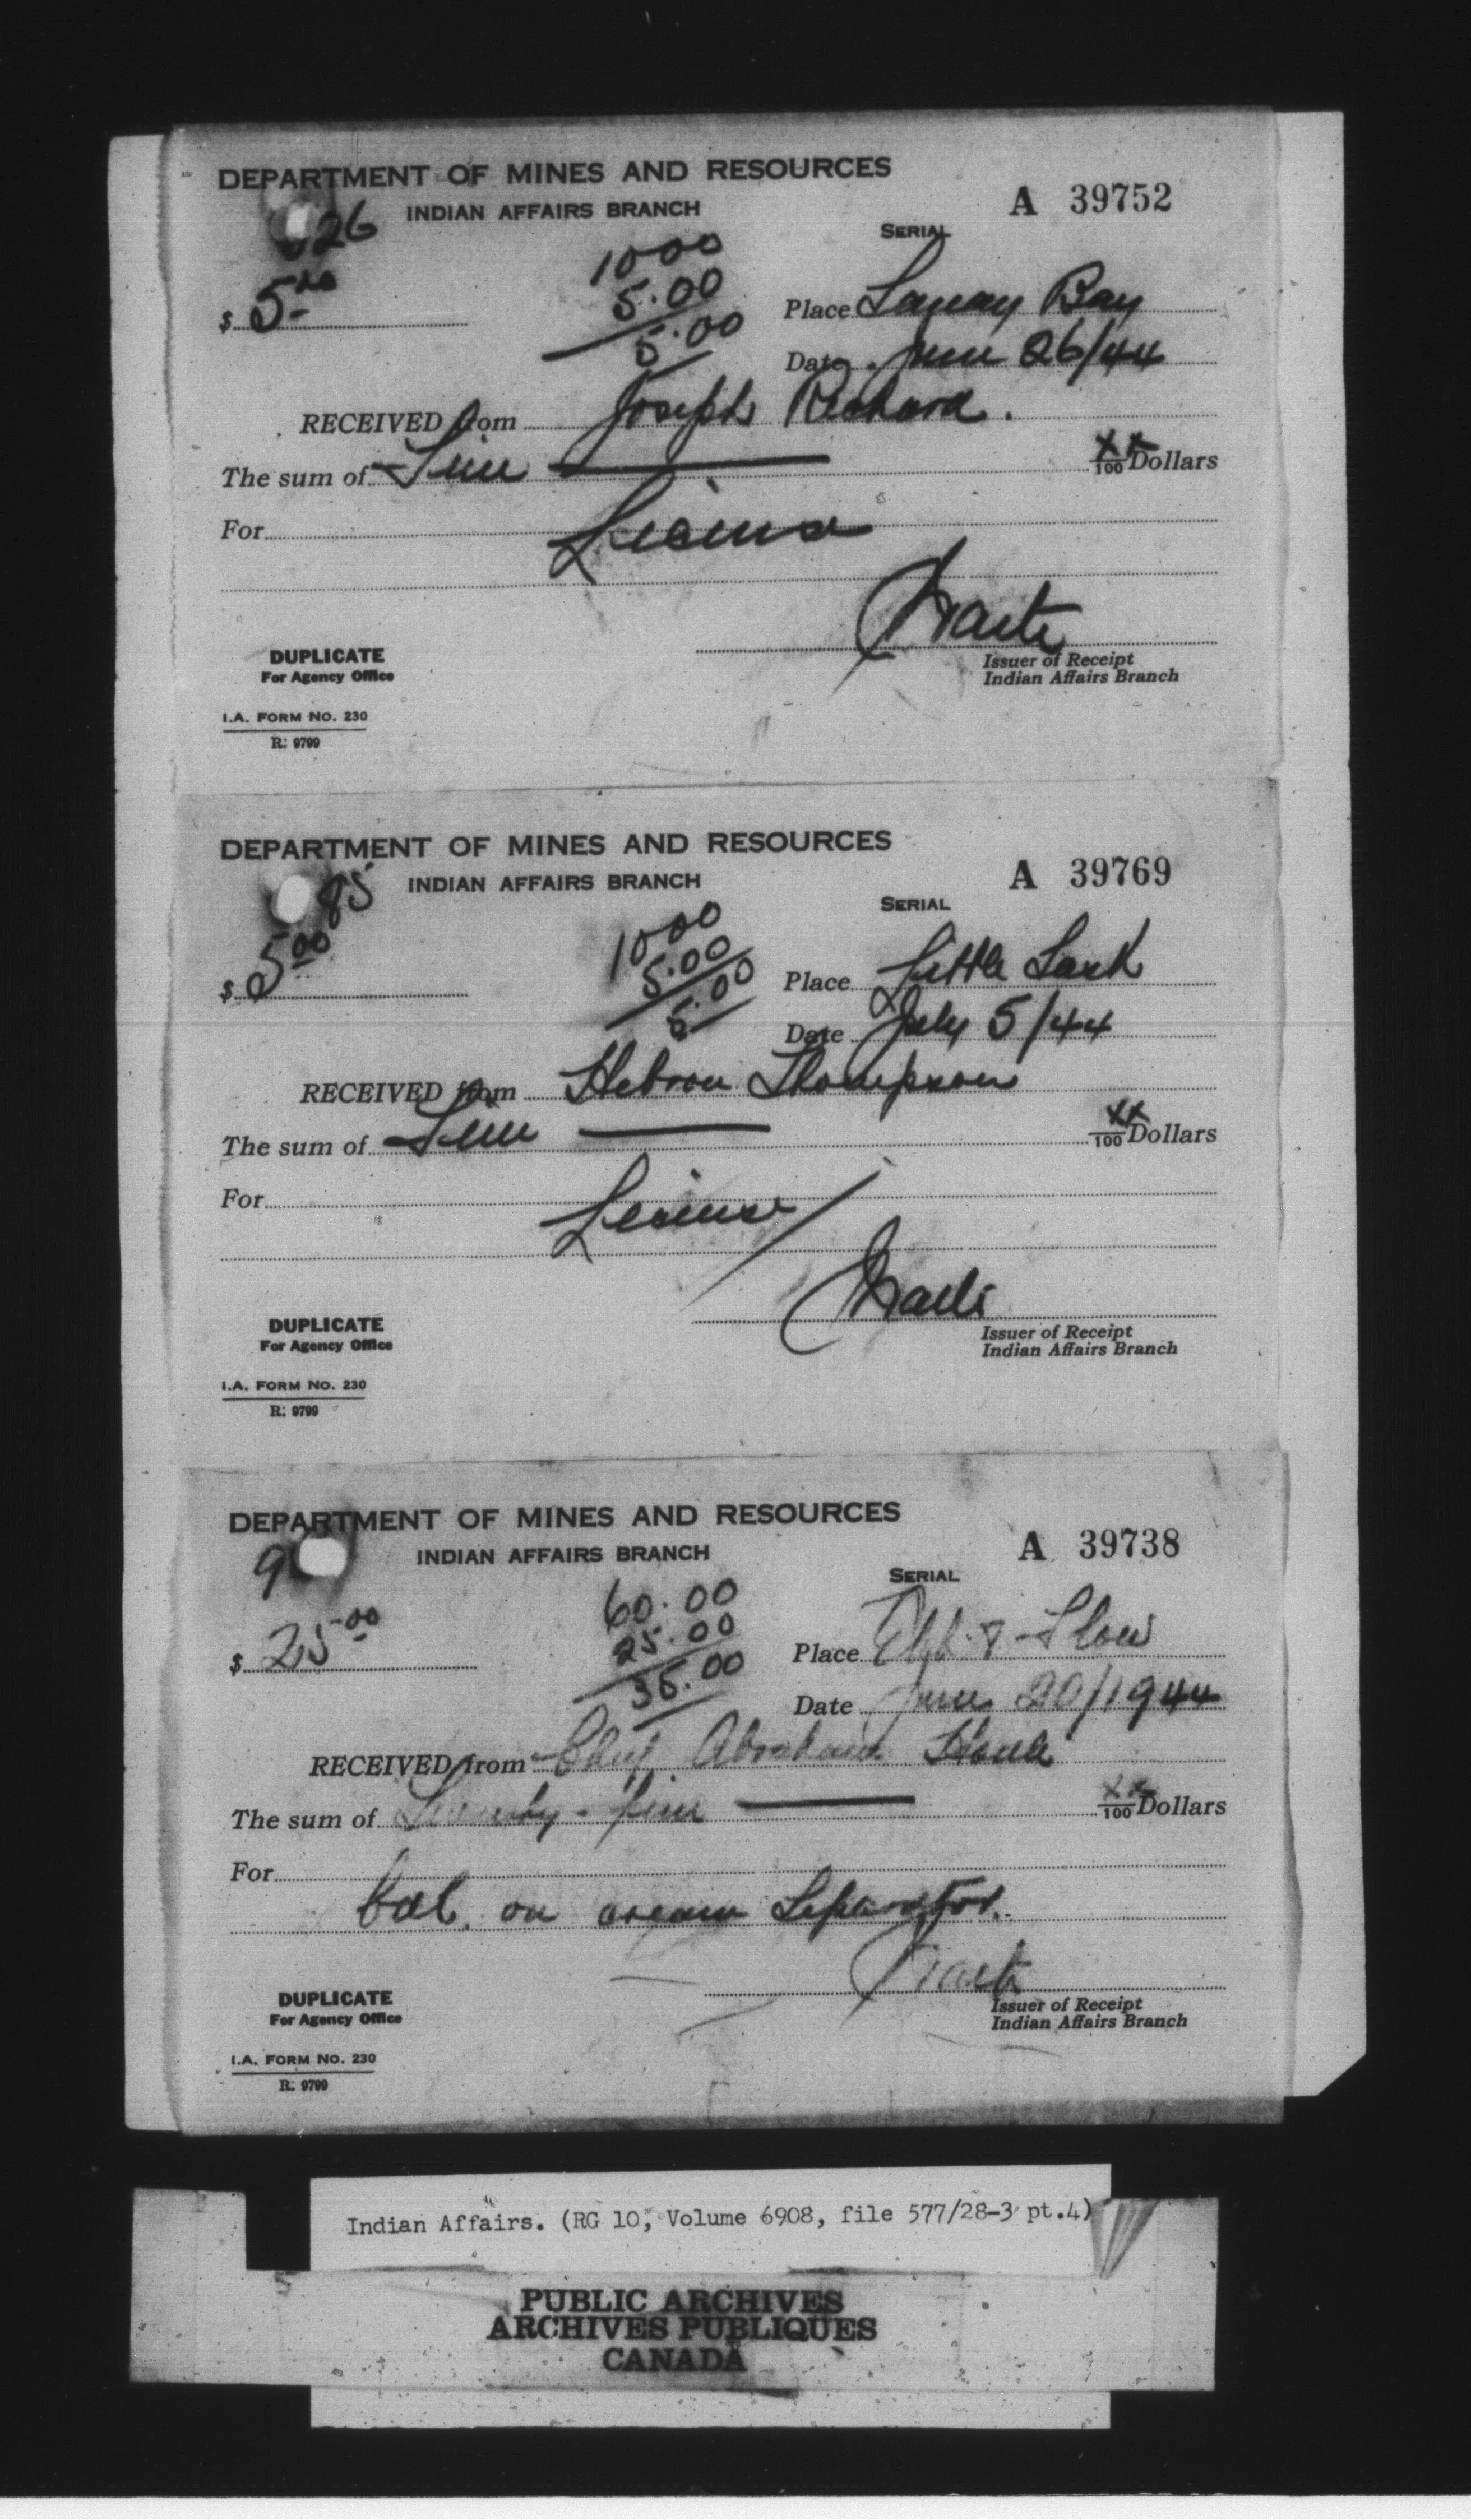 DEPARTMENT OF MINES AND RESOURCES
A 39752
26 INDIAN AFFAIRS BRANCH
SERIAL
1000
$ 5
5.00
Place Bay
5.00
Date June 26/44
RECEIVED from Joseph Richard.
The sum of Five xx/100 Dollars
For License
DUPLICATE
For Agency Office
Issuer of Receipt
Indian Affairs Branch
I.A. FORM NO. 230
R. 9799
DEPARTMENT OF MINES AND RESOURCES
A 39769
85 INDIAN AFFAIRS BRANCH
SERIAL
1000
5.00
$ 5 00
Place Little Sask
5.00
Date July 5/44
RECEIVED from Hebron Thompson
The sum of Five xx/100 Dollars
For License
DUPLICATE
For Agency Office
Issuer of Receipt
Indian Affairs Branch
I.A. FORM NO. 230
R. 9799
DEPARTMENT OF MINES AND RESOURCES
A 39738
9 INDIAN AFFAIRS BRANCH
SERIAL
60.00
25.00
$ 25 00
Place
35.00
Date June 20/1944
RECEIVED from Chief Abraham
The sum of Twenty-five xx/100 Dollars
For
bal. on cream Separator.
DUPLICATE
For Agency Office
Issuer of Receipt
Indian Affairs Branch
I.A. FORM NO. 230
R. 9799
Indian Affairs. (RG 10, Volume 6908, file 577/28-3 pt.4)
PUBLIC ARCHIVES
ARCHIVES PUBLIQUES
CANADA